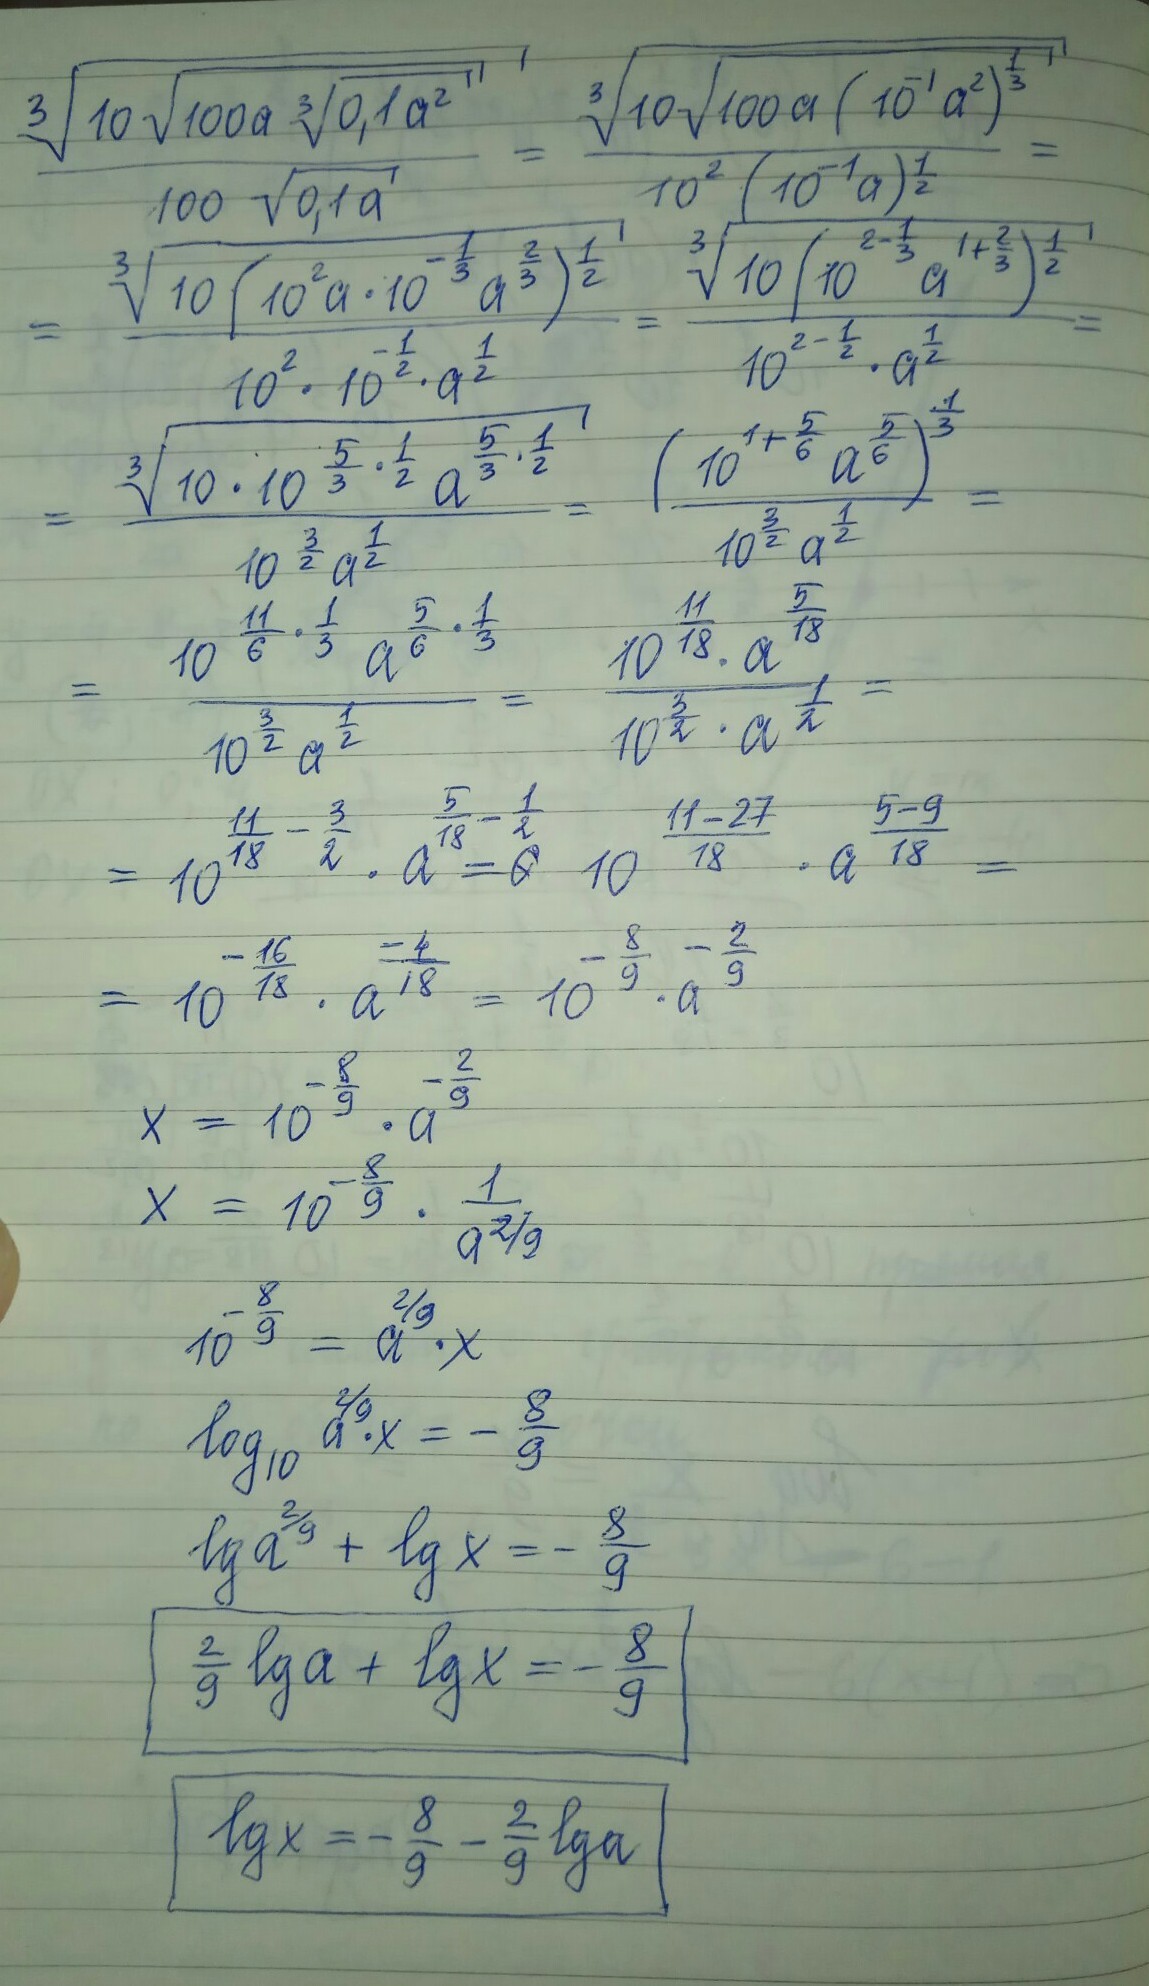 ∛(10√(100a ∛(0,1a²))) / (100 √(0,1a)) = ∛(10√(100a (10⁻¹a²)^(1/3))) / (10² (10⁻¹a)^(1/2)) =
= ∛(10 (10²a · 10^(-1/3) a^(2/3))^(1/2)) / (10² · 10^(-1/2) · a^(1/2)) = ∛(10 (10^(2-1/3) a^(1+2/3))^(1/2)) / (10^(2-1/2) · a^(1/2)) =
= ∛(10 · 10^(5/3 · 1/2) a^(5/3 · 1/2)) / (10^(3/2) a^(1/2)) = (10^(1+5/6) a^(5/6))^(1/3) / (10^(3/2) a^(1/2)) =
= 10^(11/6 · 1/3) a^(5/6 · 1/3) / (10^(3/2) a^(1/2)) = 10^(11/18) · a^(5/18) / (10^(3/2) · a^(1/2)) =
= 10^(11/18 - 3/2) · a^(5/18 - 1/2) = 10^((11-27)/18) · a^((5-9)/18) =
= 10^(-16/18) · a^(-4/18) = 10^(-8/9) · a^(-2/9)
x = 10^(-8/9) · a^(-2/9)
x = 10^(-8/9) · 1/a^(2/9)
10^(-8/9) = a^(2/9) · x
log₁₀ a^(2/9) · x = - 8/9
lg a^(2/9) + lg x = - 8/9
2/9 lg a + lg x = - 8/9
lg x = - 8/9 - 2/9 lg a